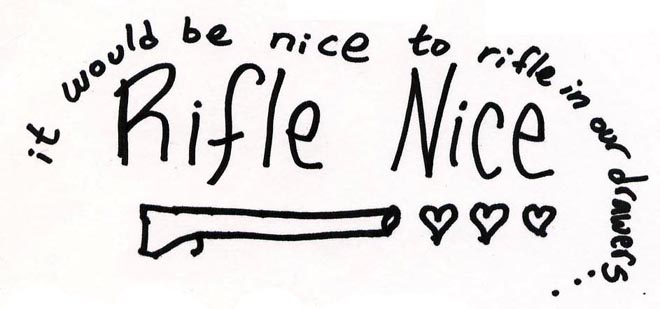 it would be nice to rifle in our drawers...
Rifle Nice